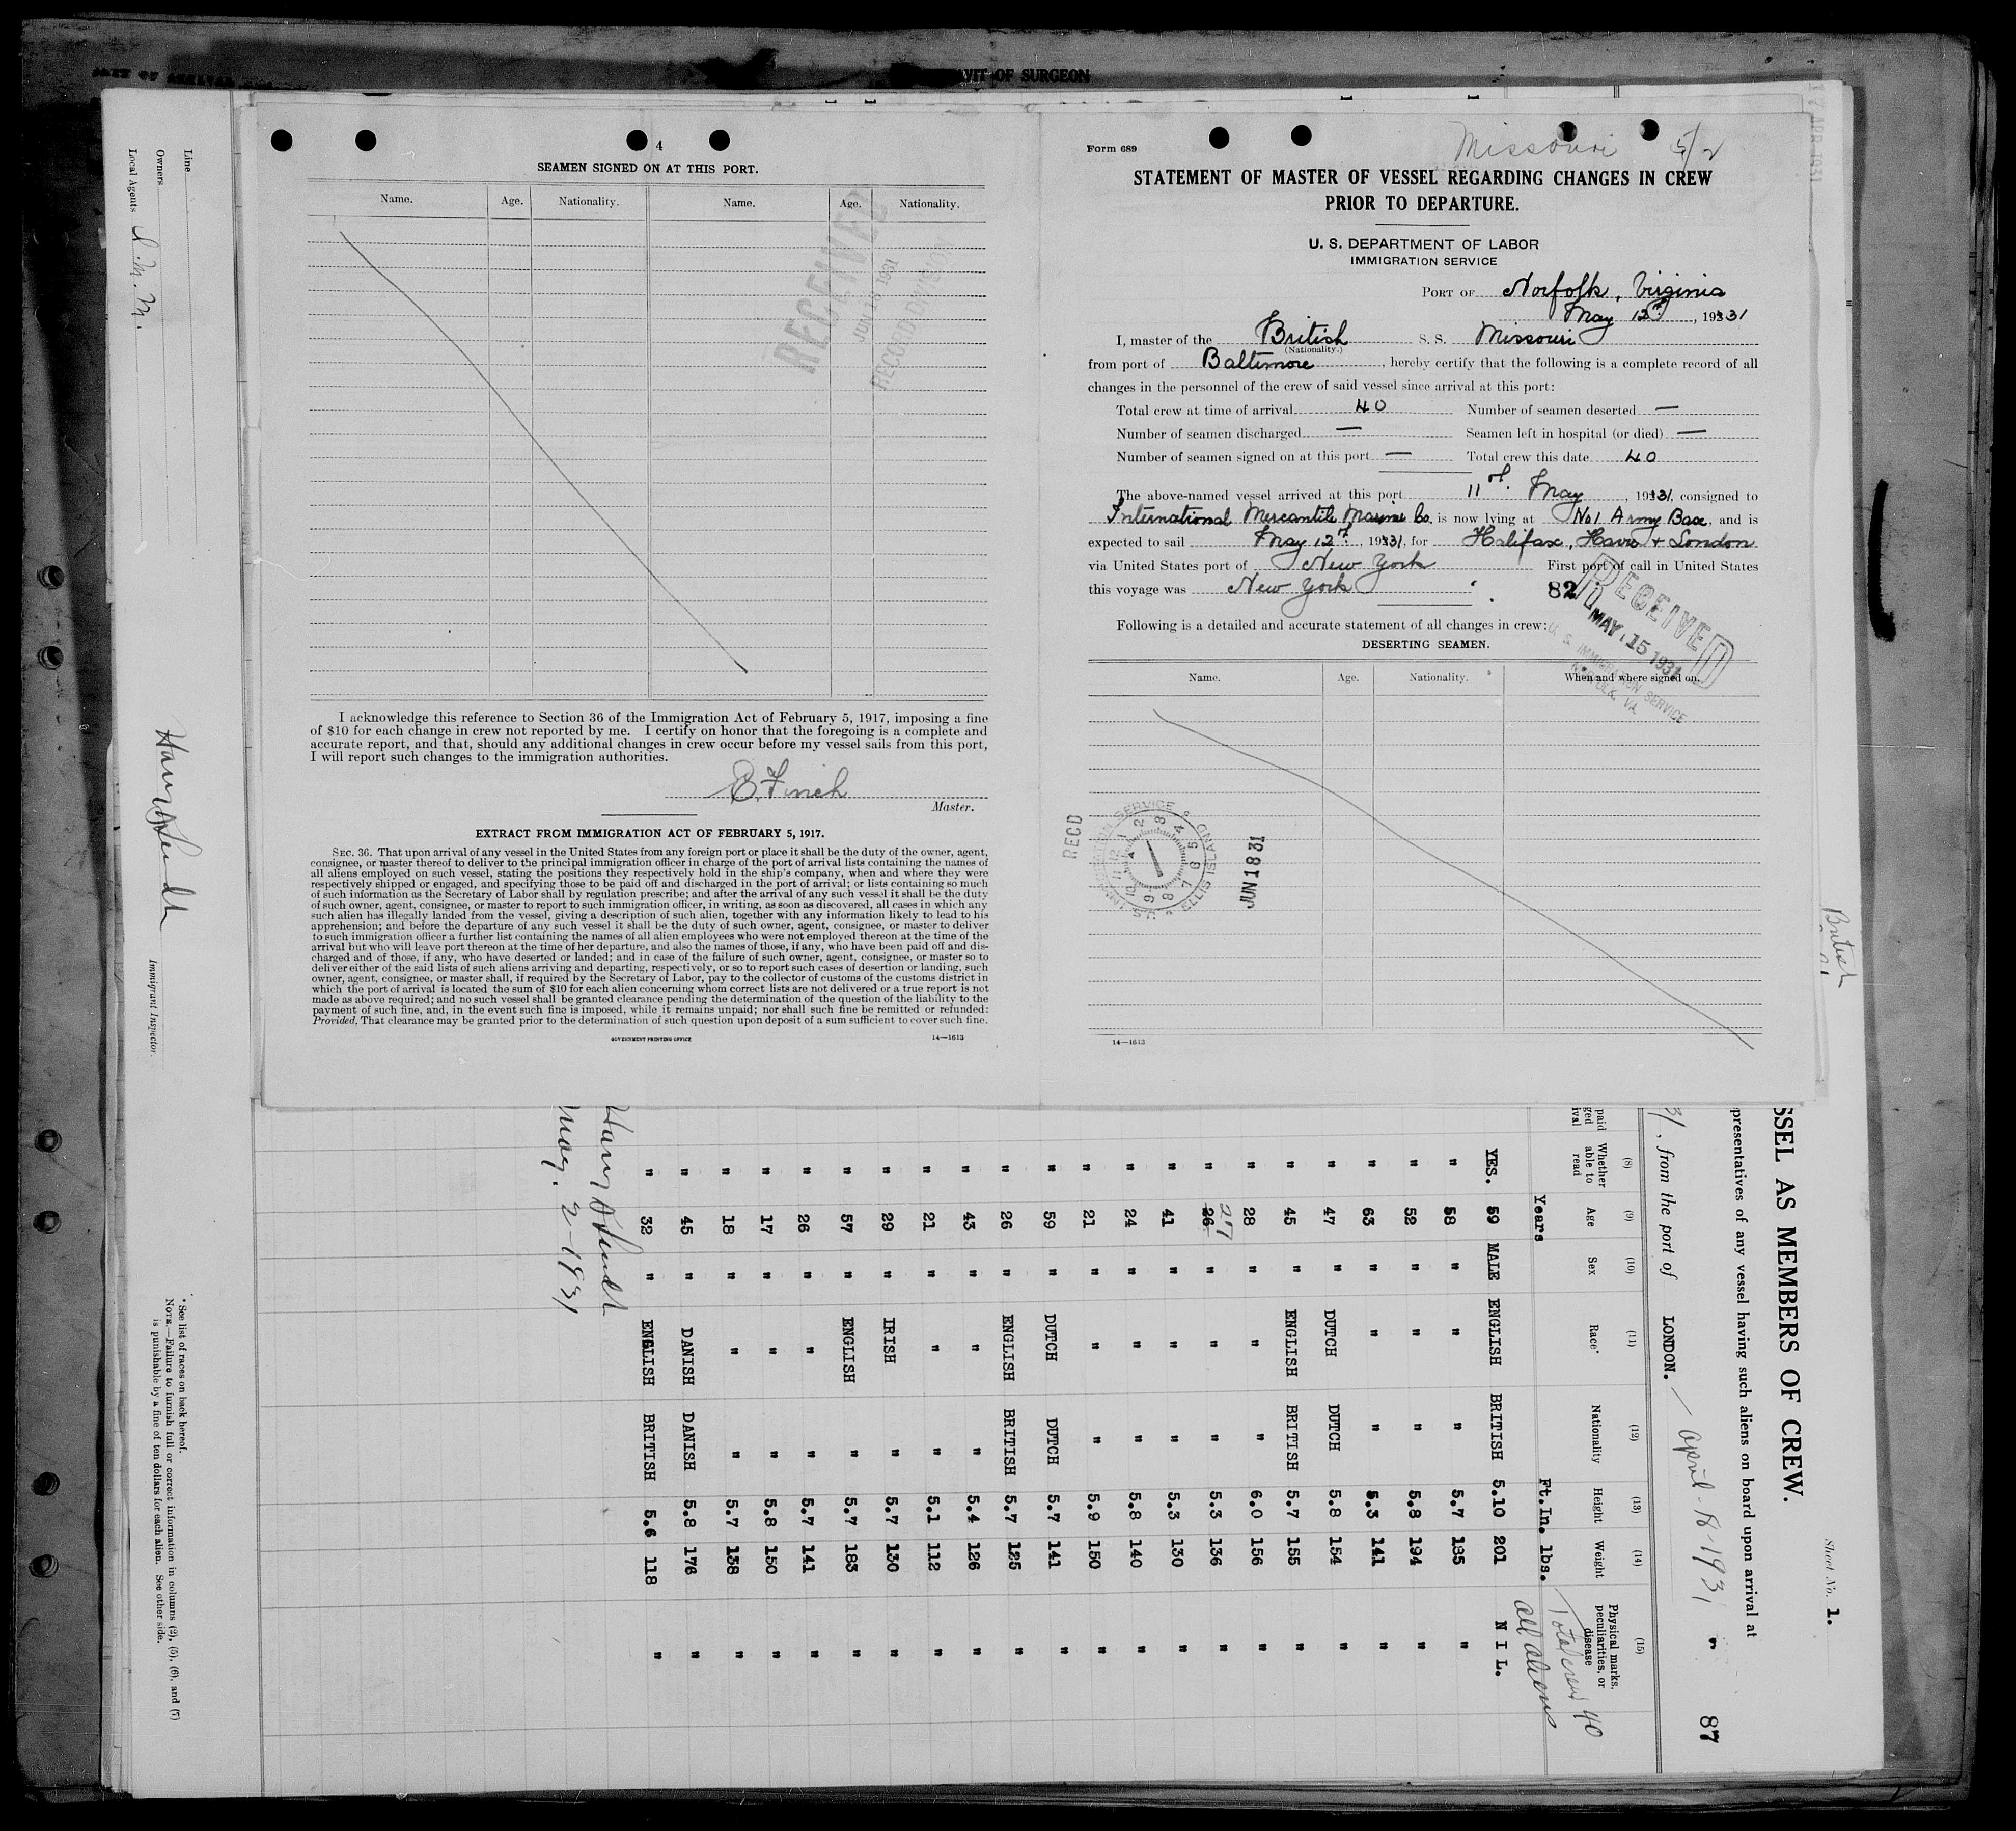 AVIT OF SURGEON
4
SEAMEN SIGNED ON AT THIS PORT.
Name. Age. Nationality. Name. Age. Nationality.
RECEIVED
JUN 18 1931
RECORD DIVISION
I acknowledge this reference to Section 36 of the Immigration Act of February 5, 1917, imposing a fine
of $10 for each change in crew not reported by me. I certify on honor that the foregoing is a complete and
accurate report, and that, should any additional changes in crew occur before my vessel sails from this port,
I will report such changes to the immigration authorities.
E. Finch
Master.
EXTRACT FROM IMMIGRATION ACT OF FEBRUARY 5, 1917.
SEC. 36. That upon arrival of any vessel in the United States from any foreign port or place it shall be the duty of the owner, agent,
consignee, or master thereof to deliver to the principal immigration officer in charge of the port of arrival lists containing the names of
all aliens employed on such vessel, stating the positions they respectively hold in the ship's company, when and where they were
respectively shipped or engaged, and specifying those to be paid off and discharged in the port of arrival; or lists containing so much
of such information as the Secretary of Labor shall by regulation prescribe; and after the arrival of any such vessel it shall be the duty
of such owner, agent, consignee, or master to report to such immigration officer, in writing, as soon as discovered, all cases in which any
such alien has illegally landed from the vessel, giving a description of such alien, together with any information likely to lead to his
apprehension; and before the departure of any such vessel it shall be the duty of such owner, agent, consignee, or master to deliver
to such immigration officer a further list containing the names of all alien employees who were not employed thereon at the time of the
arrival but who will leave port thereon at the time of her departure, and also the names of those, if any, who have been paid off and dis-
charged and of those, if any, who have deserted or landed; and in case of the failure of such owner, agent, consignee, or master so to
deliver either of the said lists of such aliens arriving and departing, respectively, or so to report such cases of desertion or landing, such
owner, agent, consignee, or master shall, if required by the Secretary of Labor, pay to the collector of customs of the customs district in
which the port of arrival is located the sum of $10 for each alien concerning whom correct lists are not delivered or a true report is not
made as above required; and no such vessel shall be granted clearance pending the determination of the question of the liability to the
payment of such fine, and, in the event such fine is imposed, while it remains unpaid; nor shall such fine be remitted or refunded:
Provided, That clearance may be granted prior to the determination of such question upon deposit of a sum sufficient to cover such fine.
GOVERNMENT PRINTING OFFICE 14—1613
Form 689
Missouri 5/2
STATEMENT OF MASTER OF VESSEL REGARDING CHANGES IN CREW
PRIOR TO DEPARTURE.
U. S. DEPARTMENT OF LABOR
IMMIGRATION SERVICE
PORT OF Norfolk, Virginia
May 12th, 1931
I, master of the British S. S. Missouri
(Nationality.)
from port of Baltimore, hereby certify that the following is a complete record of all
changes in the personnel of the crew of said vessel since arrival at this port:
Total crew at time of arrival 40 Number of seamen deserted —
Number of seamen discharged — Seamen left in hospital (or died) —
Number of seamen signed on at this port — Total crew this date 40
The above-named vessel arrived at this port 11th May, 1931, consigned to
International Mercantile Marine Co. is now lying at No 1 Army Base, and is
expected to sail May 12th, 1931, for Halifax, Havre + London
via United States port of New York First port of call in United States
this voyage was New York
82
RECEIVED
MAY 15 1931
U. S. IMMIGRATION SERVICE
NORFOLK, VA.
Following is a detailed and accurate statement of all changes in crew:
DESERTING SEAMEN.
Name. Age. Nationality. When and where signed on.
RECD
U.S. IMMIGRATION SERVICE ELLIS ISLAND
1 2 3 4 5 6 7 8 9 10 11 12
JUN 18 31
14—1613
17 APR 1931
British
Line
Owners
Local Agents I. M. M.
Immigrant Inspector.
* See list of races on back hereof.
NOTE.—Failure to furnish full or correct information in columns (2), (5), (6), and (7)
is punishable by a fine of ten dollars for each alien. See other side.
Sheet No. 1.
SSEL AS MEMBERS OF CREW.
presentatives of any vessel having such aliens on board upon arrival at
31, from the port of LONDON. April-18-1931
87
(8) (9) (10) (11) (12) (13) (14) (15)
Whether able to read Age Sex Race* Nationality Height Weight Physical marks, peculiarities, or disease
Years Ft.In. lbs. Total crew 40
all aliens
YES. 59 MALE ENGLISH BRITISH 5.10 201 N I L.
" 58 " " " 5.7 185 "
" 52 " " " 5.8 194 "
" 63 " " " 5.3 141 "
" 47 " DUTCH DUTCH 5.8 154 "
" 45 " ENGLISH BRITISH 5.7 155 "
" 28 " " " 6.0 156 "
" 26 27 " " " 5.3 136 "
" 41 " " " 5.3 130 "
" 24 " " " 5.8 140 "
" 21 " " " 5.9 150 "
" 59 " DUTCH DUTCH 5.7 141 "
" 26 " ENGLISH BRITISH 5.7 125 "
" 43 " " " 5.4 126 "
" 21 " " " 5.1 112 "
" 29 " IRISH " 5.7 130 "
" 57 " ENGLISH " 5.7 183 "
" 26 " " " 5.7 141 "
" 17 " " " 5.8 150 "
" 18 " " " 5.7 138 "
" 45 " DANISH DANISH 5.8 176 "
" 32 " ENGLISH BRITISH 5.6 118 "
May. 2-1931